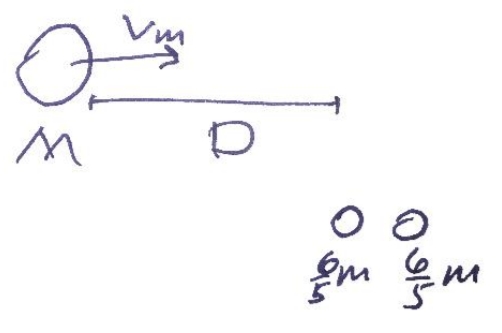 Vm
M
D
6/5 m 6/5 m